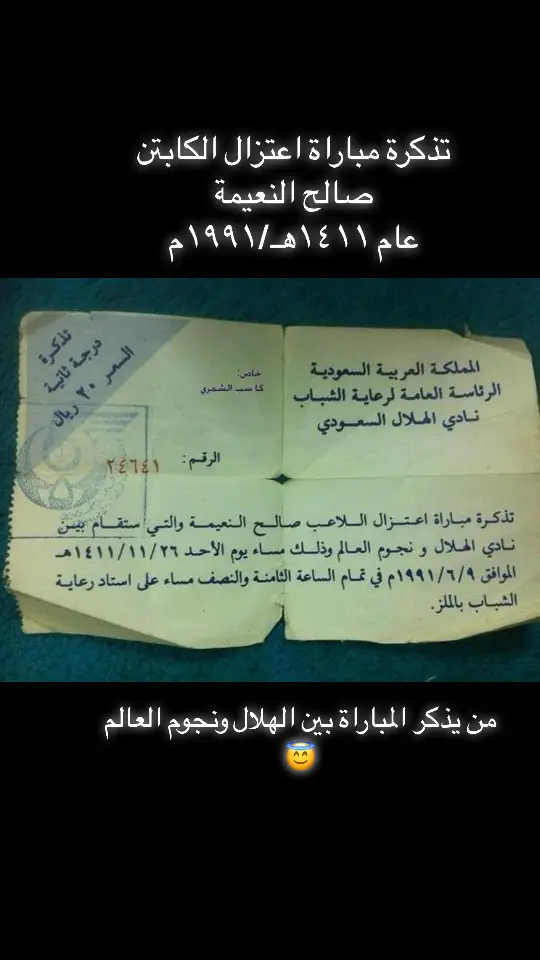 تذكرة مباراة اعتزال الكابتن
صالح النعيمة
عام ١٤١١هـ/١٩٩١م
تذكرة
درجة ثانية
السعر ٢٠ ريال
خاص:
كاسب الشمري
المملكة العربية السعودية
الرئاسة العامة لرعاية الشباب
نادي الهلال السعودي
الرقم: ٢٤٦٤١
تذكرة مباراة اعتزال اللاعب صالح النعيمة والتي ستقام بين
نادي الهلال و نجوم العالم وذلك مساء يوم الأحد ١٤١١/١١/٢٦هـ
الموافق ١٩٩١/٦/٩م في تمام الساعة الثامنة والنصف مساء على استاد رعاية
الشباب بالملز.
من يذكر المباراة بين الهلال ونجوم العالم
😇